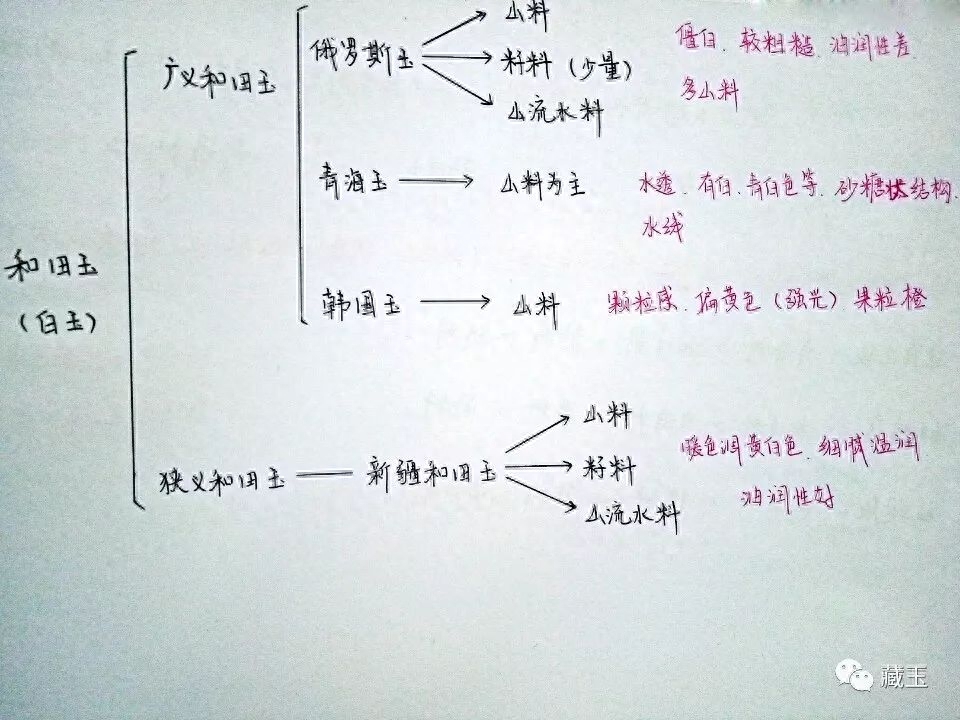 和田玉
(白玉)
广义和田玉
俄罗斯玉
山料
籽料(少量)
山流水料
僵白、较粗糙、油润性差、
多山料
青海玉
山料为主
水透、有白、青白色等、砂糖状结构、
水线
韩国玉
山料
颗粒感、偏黄色(强光)果粒橙
狭义和田玉
新疆和田玉
山料
籽料
山流水料
暖色调黄白色、细腻温润
油润性好
藏玉